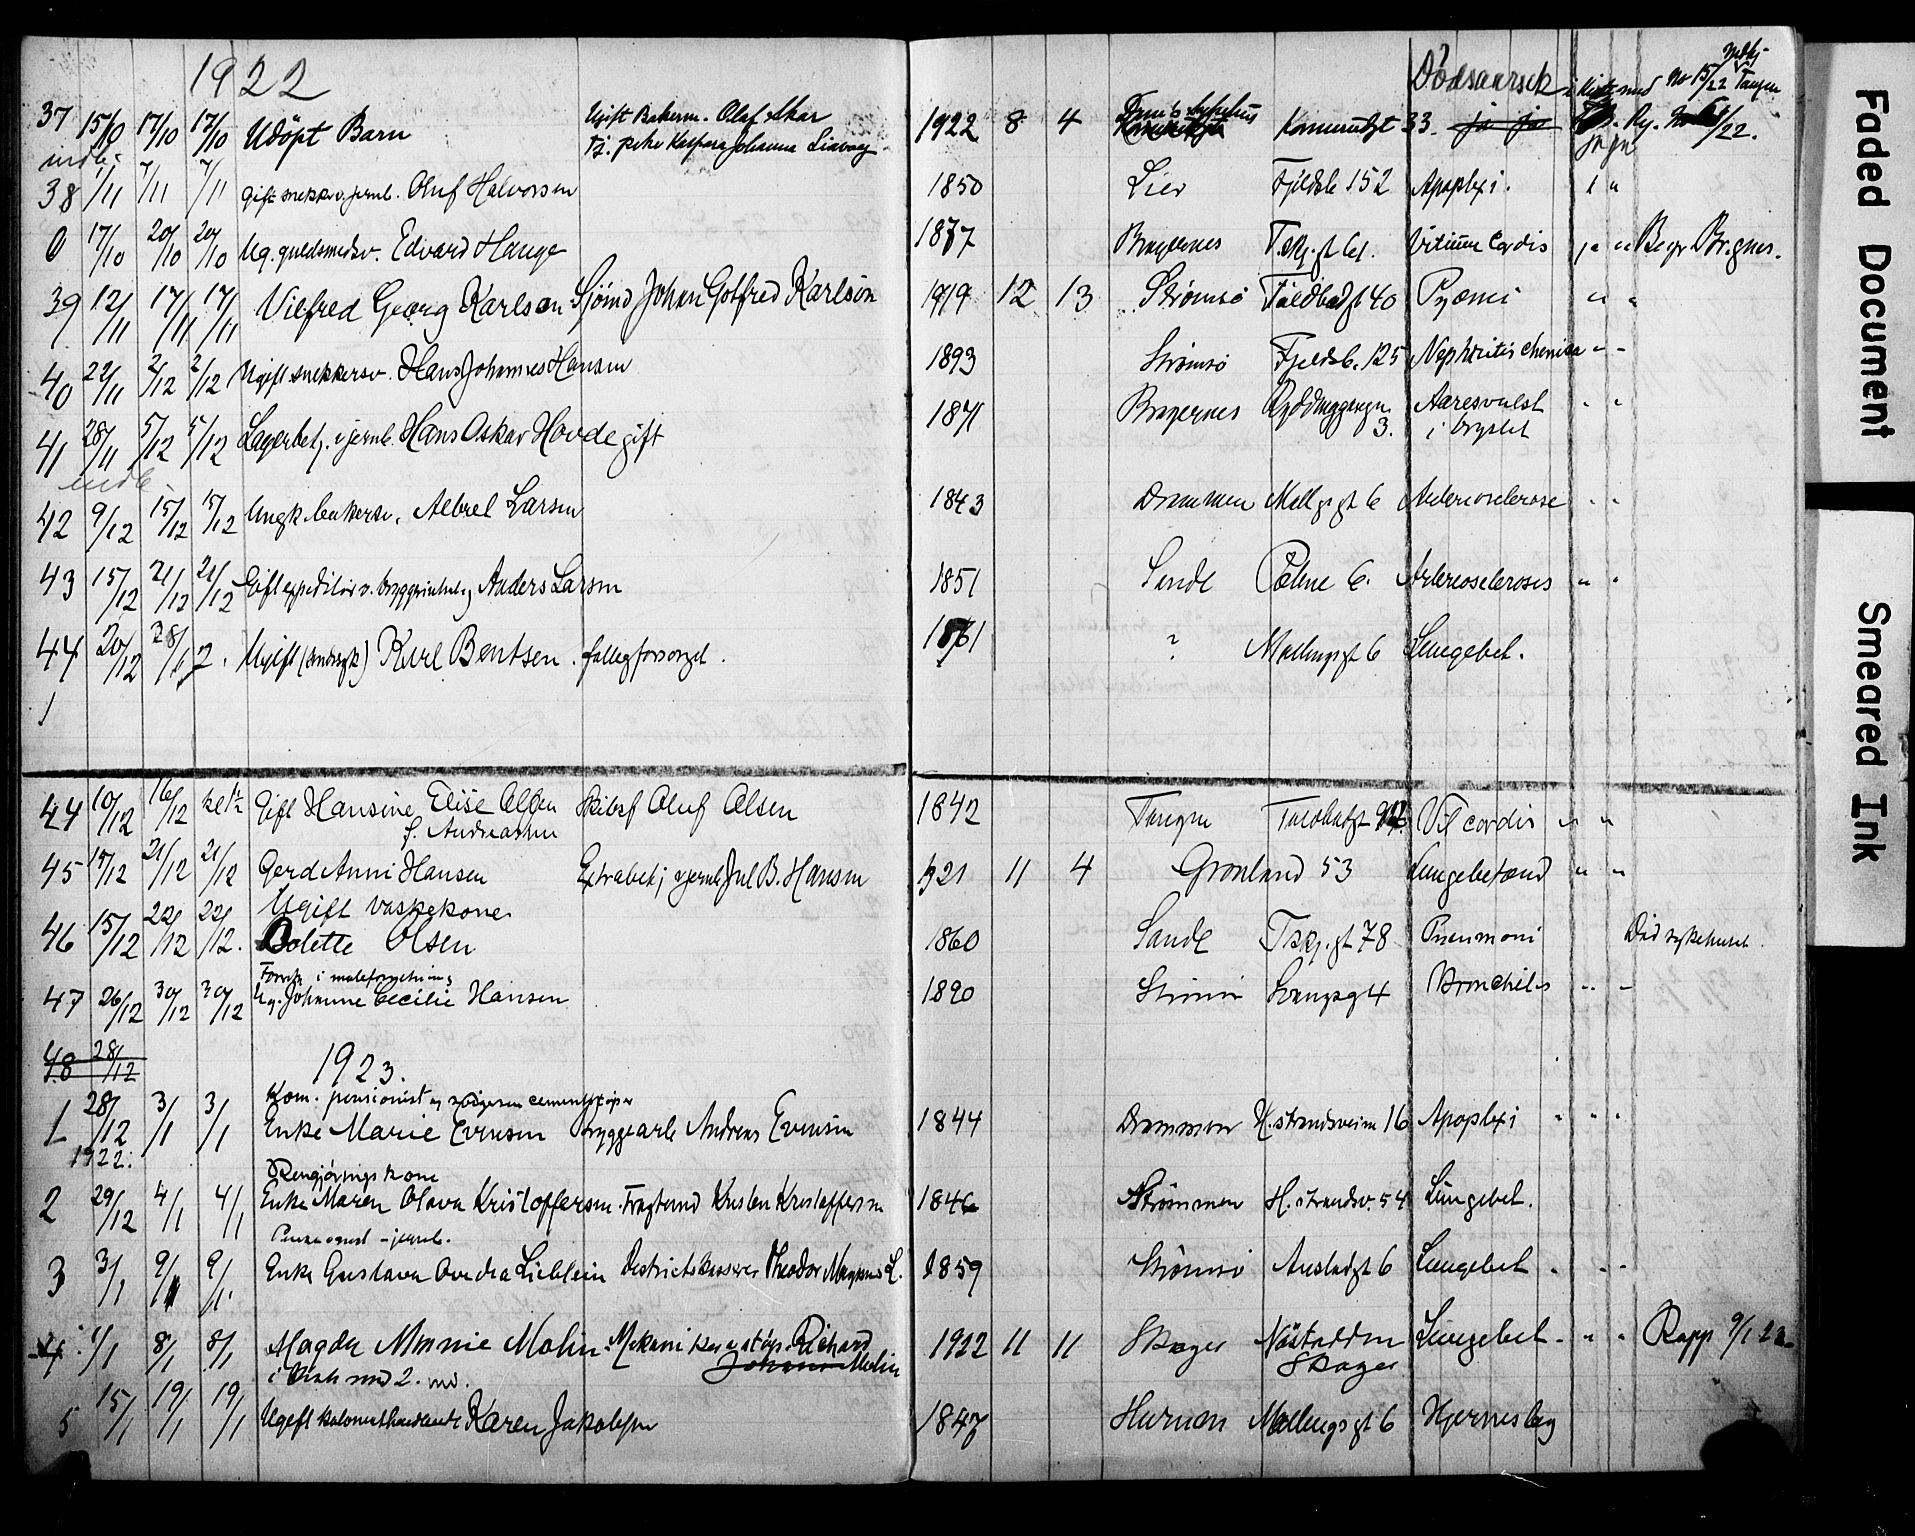 1922
Dödsaarsak
37 15/10 17/10 17/10 Udöpt Barn Ugift Bakerm. Olaf 1922 8 4 33. ja ja
Tj. pike Kaspara Johanna
38 1/11 7/11 7/11 Gift snekkerv. jernb. Oluf Halvorsen 1850 Lier Fjeldsb 152 Apoplexi.
0 17/10 20/10 20/10 Ug. guldsmedsv. Edvard Hauge 1877 Bragernes T.skj.gt 61. Vitium Cordis Begr Br.gnes.
39 12/11 17/11 17/11 Vilfred Georg Karlson Sjømd Johan Gotfred Karlson 1919 12 13 Strømsø Toldbodgt 40 Pyæmi
40 22/11 2/12 2/12 Ugift snekkersv. Hans Johannes Hansen 1893 Strømsø Fjeldsb. 125 Nephritis
41 28/11 5/12 5/12 Lagerbetj. i jernb. Hans Oskar Hovde gift 1871 Bragernes 3. Aaresvulst
i brystet
indb.
42 9/12 15/12 15/12 Ungk. bakersv. Larsen 1843 Drammen Mallgsgt 6 Arteriosclerose
43 15/12 21/12 21/12 Gift expeditør v. Anders Larsen 1851 Sande 6. Arteriosclerosis
44 20/12 28/12 Ugift Karl Bentsen. fattigforsorget. 1861 ? Mallingsgt 6 Lungebet.
1
44 10/12 16/12 kl 1½ Gift Hansine Elise Olsen Skibsf Oluf Olsen 1842 Tangen Vit cordis
f. Andreassen
45 17/12 21/12 21/12 Gerd Anni Hansen Extrabetj jernb Jul B. Hansen 1921 11 4 Grønland 53 Lungebetænd
Ugift vaskekone
46 15/12 22/12 22/12. Bolette Olsen 1860 Sande Tskj.gt 78 Pneumoni Död sykehuset.
Forrtn. i maleforretning
47 26/12 30/12 30/12 Ug. Johanne Cecilie Hansen 1890 Strømsø 4 Bronchitis
48 28/12
1923.
Kom. pensionist
1 28/12 3/1 3/1 Enke Marie Evensen Bryggearb Andreas Evensen 1844 Drammen H.strandsveien 16 Apoplexi
1922.
Rengjøringskone
2 29/12 4/1 4/1 Enke Maren Olava Kristoffersen Fragtemd Kristen Kristoffersen 1846 Strømmen H.strandsv. 54 Lungebet.
Pensionist - jernb.
3 3/1 9/1 9/1 Enke Gustava Ovedia Lieblein Distriktskasserer Theodor Magnus L. 1859 Strømsø Austadgt 6 Lungebet
4 1/1 8/1 8/1 Magda Minnie Molin Richard 1922 11 11 Skoger Nøstodden Lungebet Rapp 9/1 23
Johanne Molin Skoger
i Kiste med 2.
5 15/1 19/1 19/1 Ugift kolonialhandlende Karen Jakobsen 1847 Hurum Mallingsgt 6 Hjerneslag
Faded Document
Smeared Ink